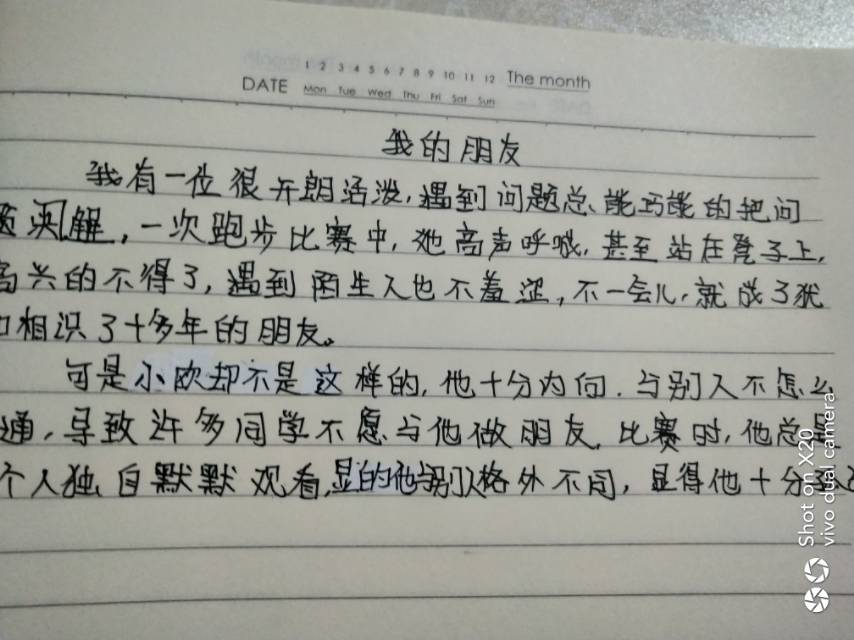 1 2 3 4 5 6 7 8 9 10 11 12 The month
DATE Mon Tue Wed Thu Fri Sat Sun
我的朋友
我有一位很开朗活泼,遇到问题总能巧能的把问
解,一次跑步比赛中,她高声呼喊,甚至站在凳子上,
高兴的不得了,遇到陌生人也不羞涩,不一会儿,就成了犹
相识了十多年的朋友。
可是小欧却不是这样的,他十分内向.与别人不怎么
通,导致许多同学不愿与他做朋友,比赛时,他总是
个人独自默默观看,显的他与别人格外不同,显得他十分
Shot on X20
vivo dual camera